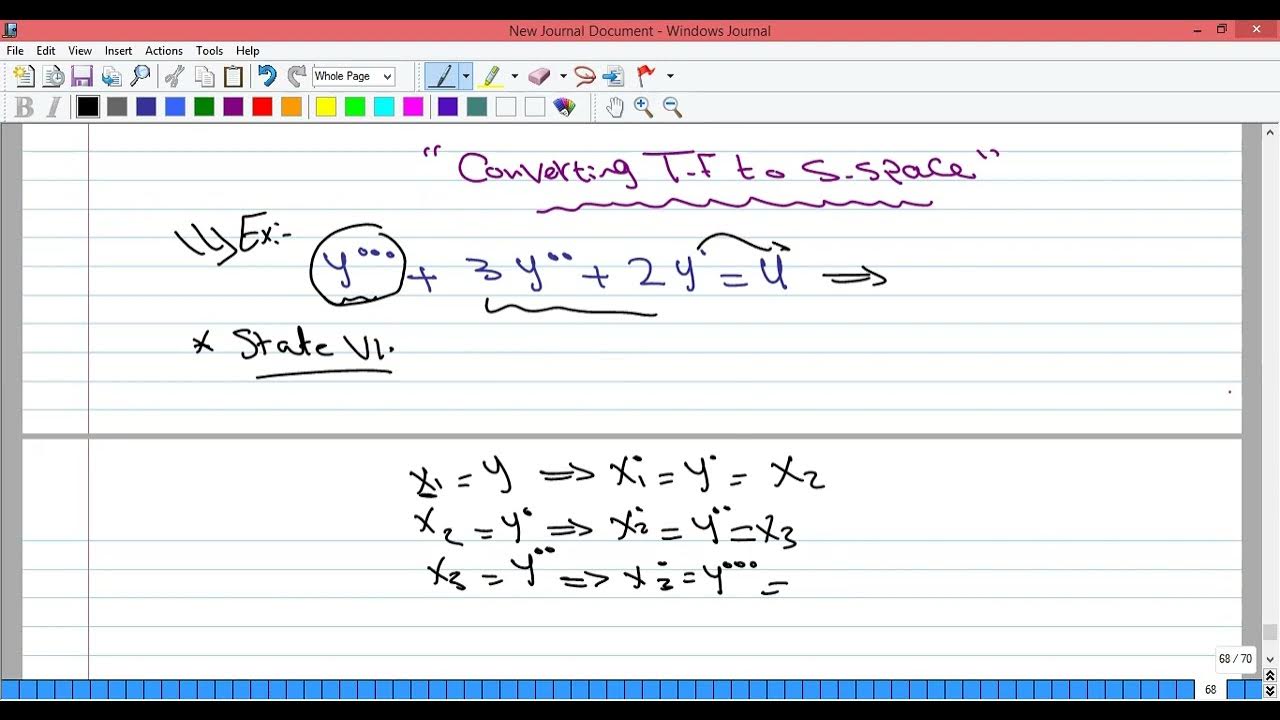 New Journal Document - Windows Journal
File Edit View Insert Actions Tools Help
Whole Page
B I
"Converting T.F to S-space"
Ex:-
y°°° + 3y°° + 2y° = u ⇒
* State V1.
x1 = y ⇒ x1° = y° = x2
x2 = y° ⇒ x2° = y°° = x3
x3 = y°° ⇒ x3° = y°°° =
68 / 70
68